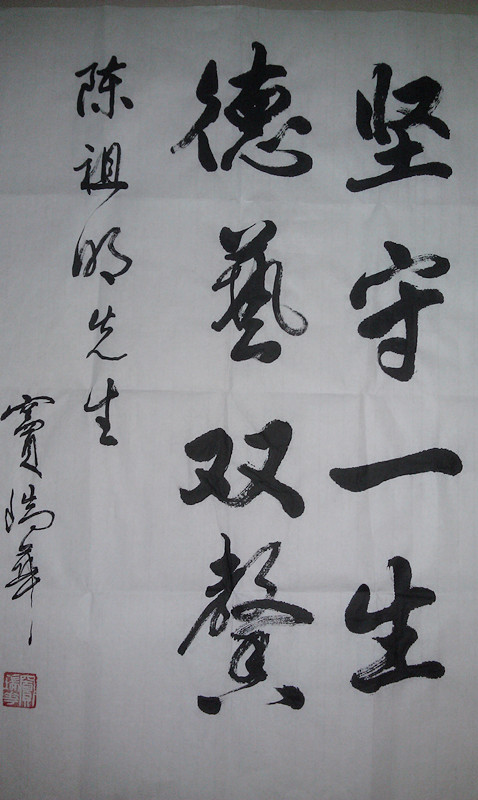 坚守一生
德藝双馨
陈祖明先生
窦瑞华